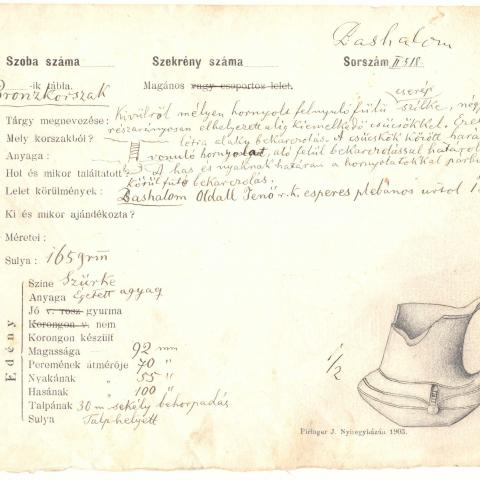 Bashalom
Szoba száma Szekrény száma Sorszám II 518.
-ik tábla. Magános vagy csoportos lelet. cserép
Bronzkorszak Kívülről mélyen hornyolt felnyuló fülű szilke, négy
Tárgy megnevezése: részarányosan elhelyezett alig kiemelkedő csúcsökkel.
Mely korszakból? létra alakú bekarczolás. A csúcskök között
Anyaga: vonuló hornyolat, alól felül bekarczolással
Hol és mikor találtatott? A has és nyaknak határán a hornyolatokkal
Lelet körülmények: körül futó bekarczolás.
Bashalom Oldall Jenő r. k. esperes plebános úrtól
Ki és mikor ajándékozta?
Méretei:
Sulya: 165 grm
Edény
Szine Szürke
Anyaga Égetett agyag
Jó v. rosz gyurma
Korongon v. nem
Korongon készült
Magassága 92 mm
Peremének átmérője 70 "
Nyakának " 55 "
Hasának " 100 "
Talpának 30 m sekély behorpadás
Sulya Talp helyett
1/2
Piringer J. Nyiregyházán 1905.